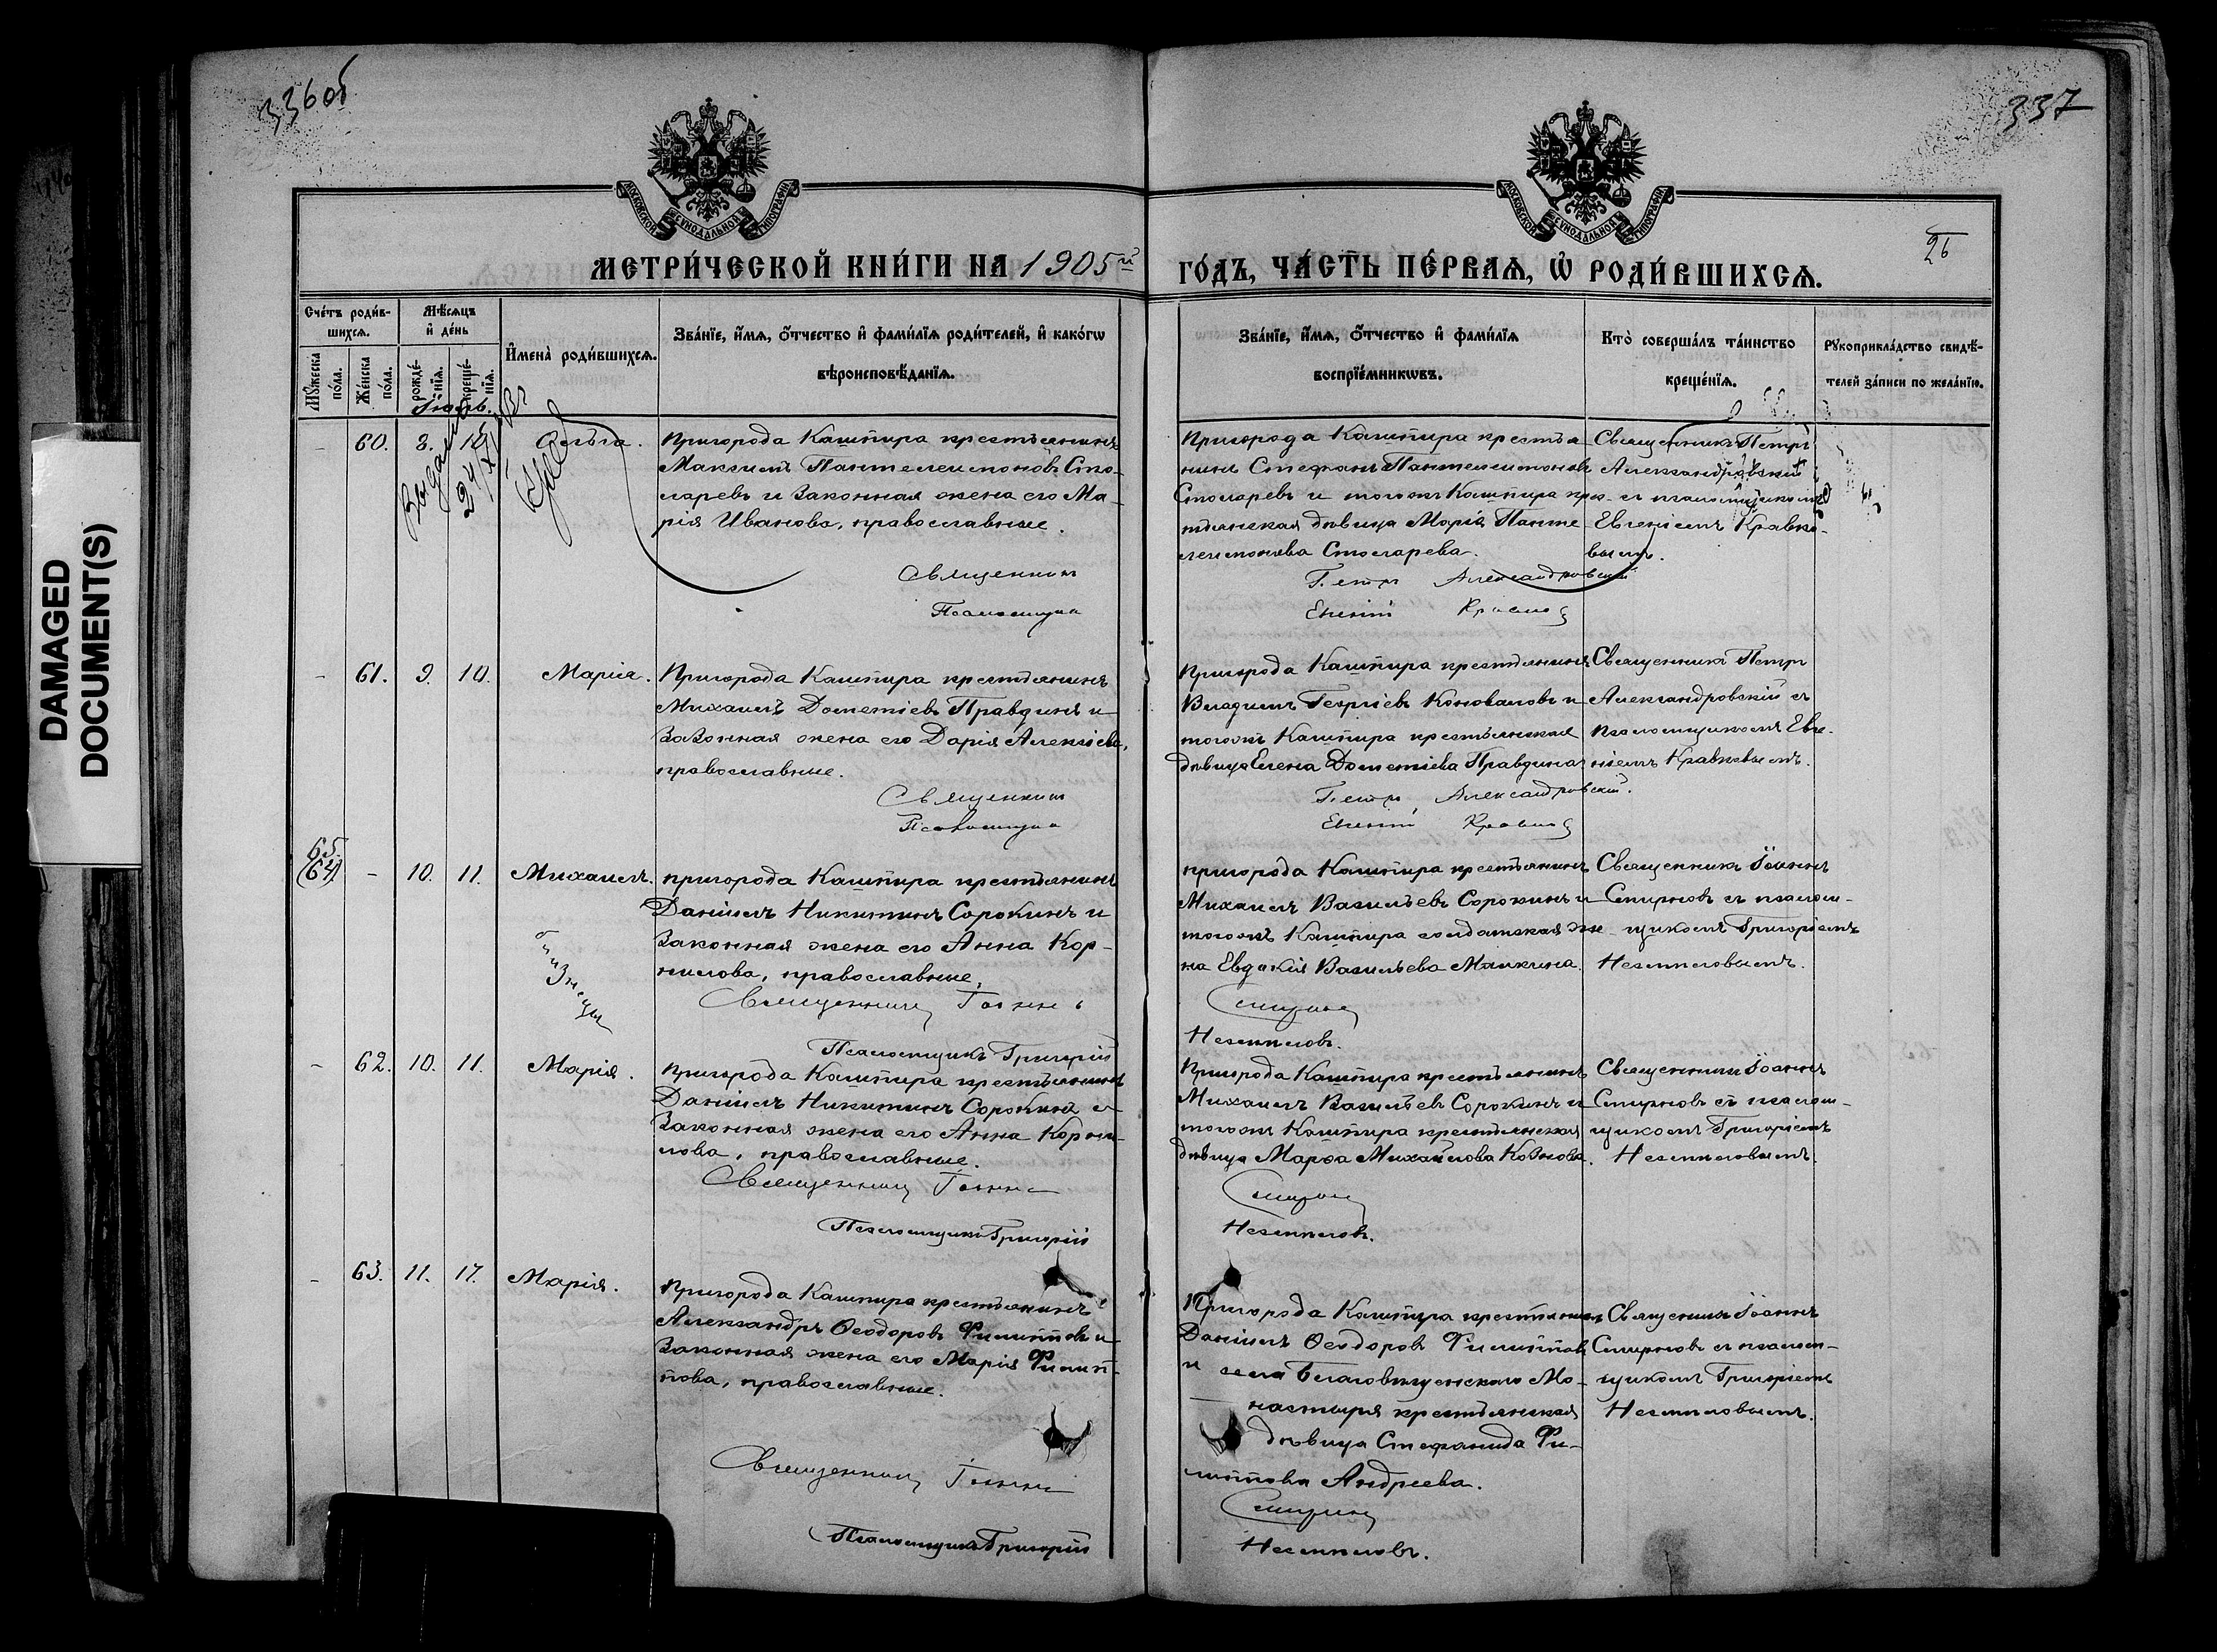 DAMAGED
DOCUMENT(S)
336об
337
26
МОСКОВСКОЙ СѴНОДАЛЬНОЙ ТИПОГРАФІИ
МОСКОВСКОЙ СѴНОДАЛЬНОЙ ТИПОГРАФІИ
МЕТРИ́ЧЕСКОЙ КНИ́ГИ НА 1905й
ГО́ДЪ, ЧА́СТЬ ПЕ́РВАѦ, Ѡ҆ РОДИ́ВШИХСѦ.
Сче́тъ роди́в-
шихсѧ.
Мꙋ́жеска
по́ла.
Же́нска
по́ла.
Мѣ́сѧцъ
и҆ де́нь
рожде́-
нїѧ.
креще́-
нїѧ.
И҆мена̀ роди́вшихсѧ.
Зва́нїе, и҆́мѧ, ѻ҆́тчество и҆ фами́лїѧ роди́телей, и҆ како́гѡ
вѣроисповѣ́данїѧ.
Зва́нїе, и҆́мѧ, ѻ҆́тчество и҆ фами́лїѧ
воспрїе́мникѡвъ.
Кто̀ соверша́лъ та́инство
креще́нїѧ.
Рꙋкоприкла́дство свидѣ́-
телей за́писи по жела́нїю.
Іюль.
- 60. 8. 10. Ольга.
Пригорода Кашпира крестьянинъ
Максимъ Пантелеимоновъ Сто-
ляревъ и законная жена его Ма-
рія Иванова, православные.
Священникъ
Псаломщикъ
Пригорода Кашпира крестья
нинъ Стефанъ Пантелеимоновъ
Столяревъ и тогожъ Кашпира кре-
стьянская дѣвица Марія Панте
леимонова Столярева.
Петръ Александровскій
Евгеній Кравковъ
Священникъ Петръ
Александровскій
съ псаломщикомъ
Евгеніемъ Кравко-
вымъ.
Выдана
24/XI
- 61. 9. 10. Марія.
Пригорода Кашпира крестьянинъ
Михаилъ Дометіевъ Правдинъ и
законная жена его Дарія Алексіева,
православные.
Священникъ
Псаломщикъ
Пригорода Кашпира крестьянинъ
Владимъ Георгіевъ Коноваловъ и
тогожъ Кашпира крестьянская
дѣвица Елена Дометіева Правдина
Петръ Александровскій.
Евгеній Кравковъ
Священникъ Петръ
Александровскій съ
псаломщикомъ Евге-
ніемъ Кравковымъ.
65.
(64) - 10. 11. Михаилъ.
близнецы
пригорода Кашпира крестьянинъ
Даніилъ Никитинъ Сорокинъ и
законная жена его Анна Кор-
нилова, православные.
Священникъ Іоаннъ
Псаломщикъ Григорій
пригорода Кашпира крестьянинъ
Михаилъ Васильевъ Сорокинъ и
тогожъ Кашпира солдатская же-
на Евдокія Васильева Маикина.
Смирновъ
Несмеловъ.
Священникъ Іоаннъ
Смирновъ съ псалом-
щикомъ Григоріемъ
Несмеловымъ.
- 62. 10. 11. Марія.
Пригорода Кашпира крестьянинъ
Даніилъ Никитинъ Сорокинъ и
законная жена его Анна Корни-
лова, православные.
Священникъ Іоаннъ
Псаломщикъ Григорій
Пригорода Кашпира крестьянинъ
Михаилъ Васильевъ Сорокинъ и
тогожъ Кашпира крестьянская
дѣвица Марѳа Михайлова Козлова.
Смирновъ
Несмеловъ.
Священникъ Іоаннъ
Смирновъ съ псалом-
щикомъ Григоріемъ
Несмеловымъ.
- 63. 11. 17. Марія.
Пригорода Кашпира крестьянинъ
Александръ Ѳеодоровъ Филипповъ и
законная жена его Марія Филип-
пова, православные.
Священникъ Іоаннъ
Псаломщикъ Григорій
Пригорода Кашпира крестьянинъ
Даніилъ Ѳеодоровъ Филипповъ
и села Благовѣщенскаго Мо-
настыря крестьянская
дѣвица Стефанида Фи-
липпова Андреева.
Смирновъ
Несмеловъ.
Священникъ Іоаннъ
Смирновъ съ псалом-
щикомъ Григоріемъ
Несмеловымъ.